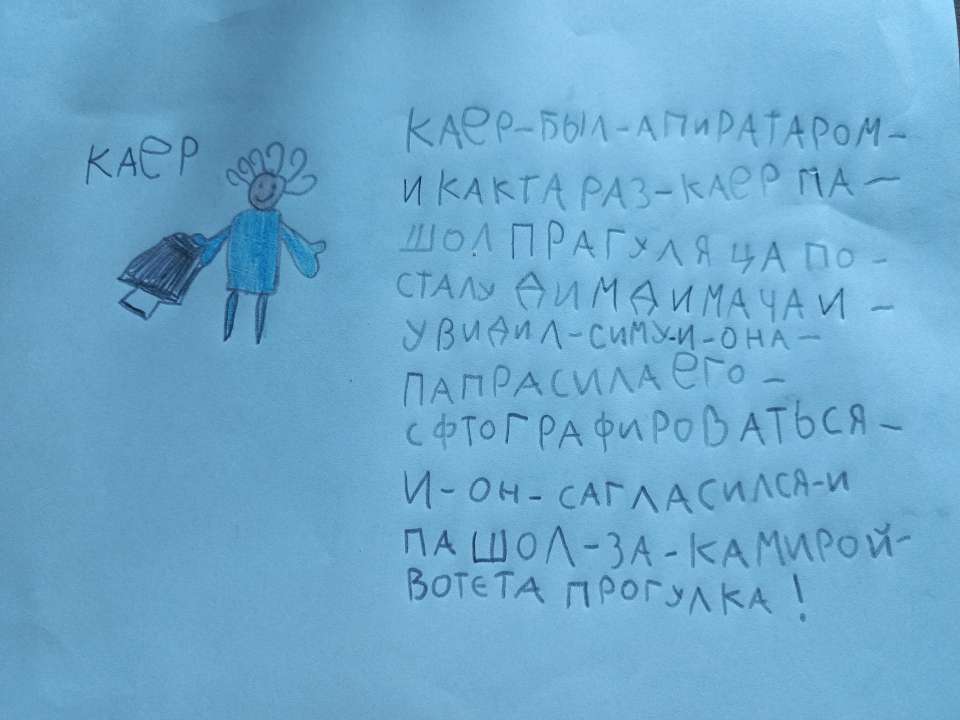 КАЕР
КАЕР-БЫЛ-АПИРАТАРОМ-
И КАКТА РАЗ-КАЕР ПА-
ШОЛ ПРАГУЛЯЦА ПО-
СТАЛУ ДИМДИМАЧА И-
УВИДИЛ-СИМУ-И-ОНА-
ПАПРАСИЛА ЕГО-
СФТОГРАФИРОВАТЬСЯ-
И-ОН-САГЛАСИЛСЯ-И
ПАШОЛ-ЗА-КАМИРОЙ-
ВОТЕТА ПРОГУЛКА!